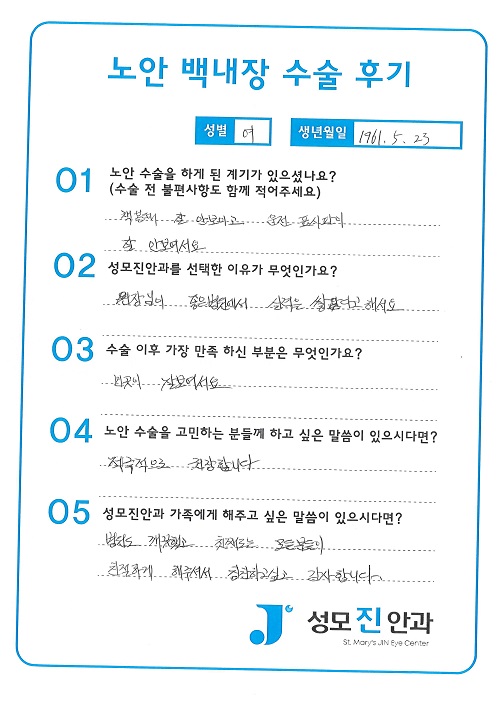 노안 백내장 수술 후기
성별 여 생년월일 1961. 5. 23
01 노안 수술을 하게 된 계기가 있으셨나요?
(수술 전 불편사항도 함께 적어주세요)
잘 안보이고 운전 표시판이
잘 안보여서요
02 성모진안과를 선택한 이유가 무엇인가요?
원장님이 좋은병원에서 실력을
03 수술 이후 가장 만족 하신 부분은 무엇인가요?
잘보여서요
04 노안 수술을 고민하는 분들께 하고 싶은 말씀이 있으시다면?
적극적으로 권장합니다
05 성모진안과 가족에게 해주고 싶은 말씀이 있으시다면?
병원도 깨끗했고 모든분들이
친절하게 해주셔서 칭찬하고싶고 감사합니다.
성모진안과
St. Mary's JIN Eye Center